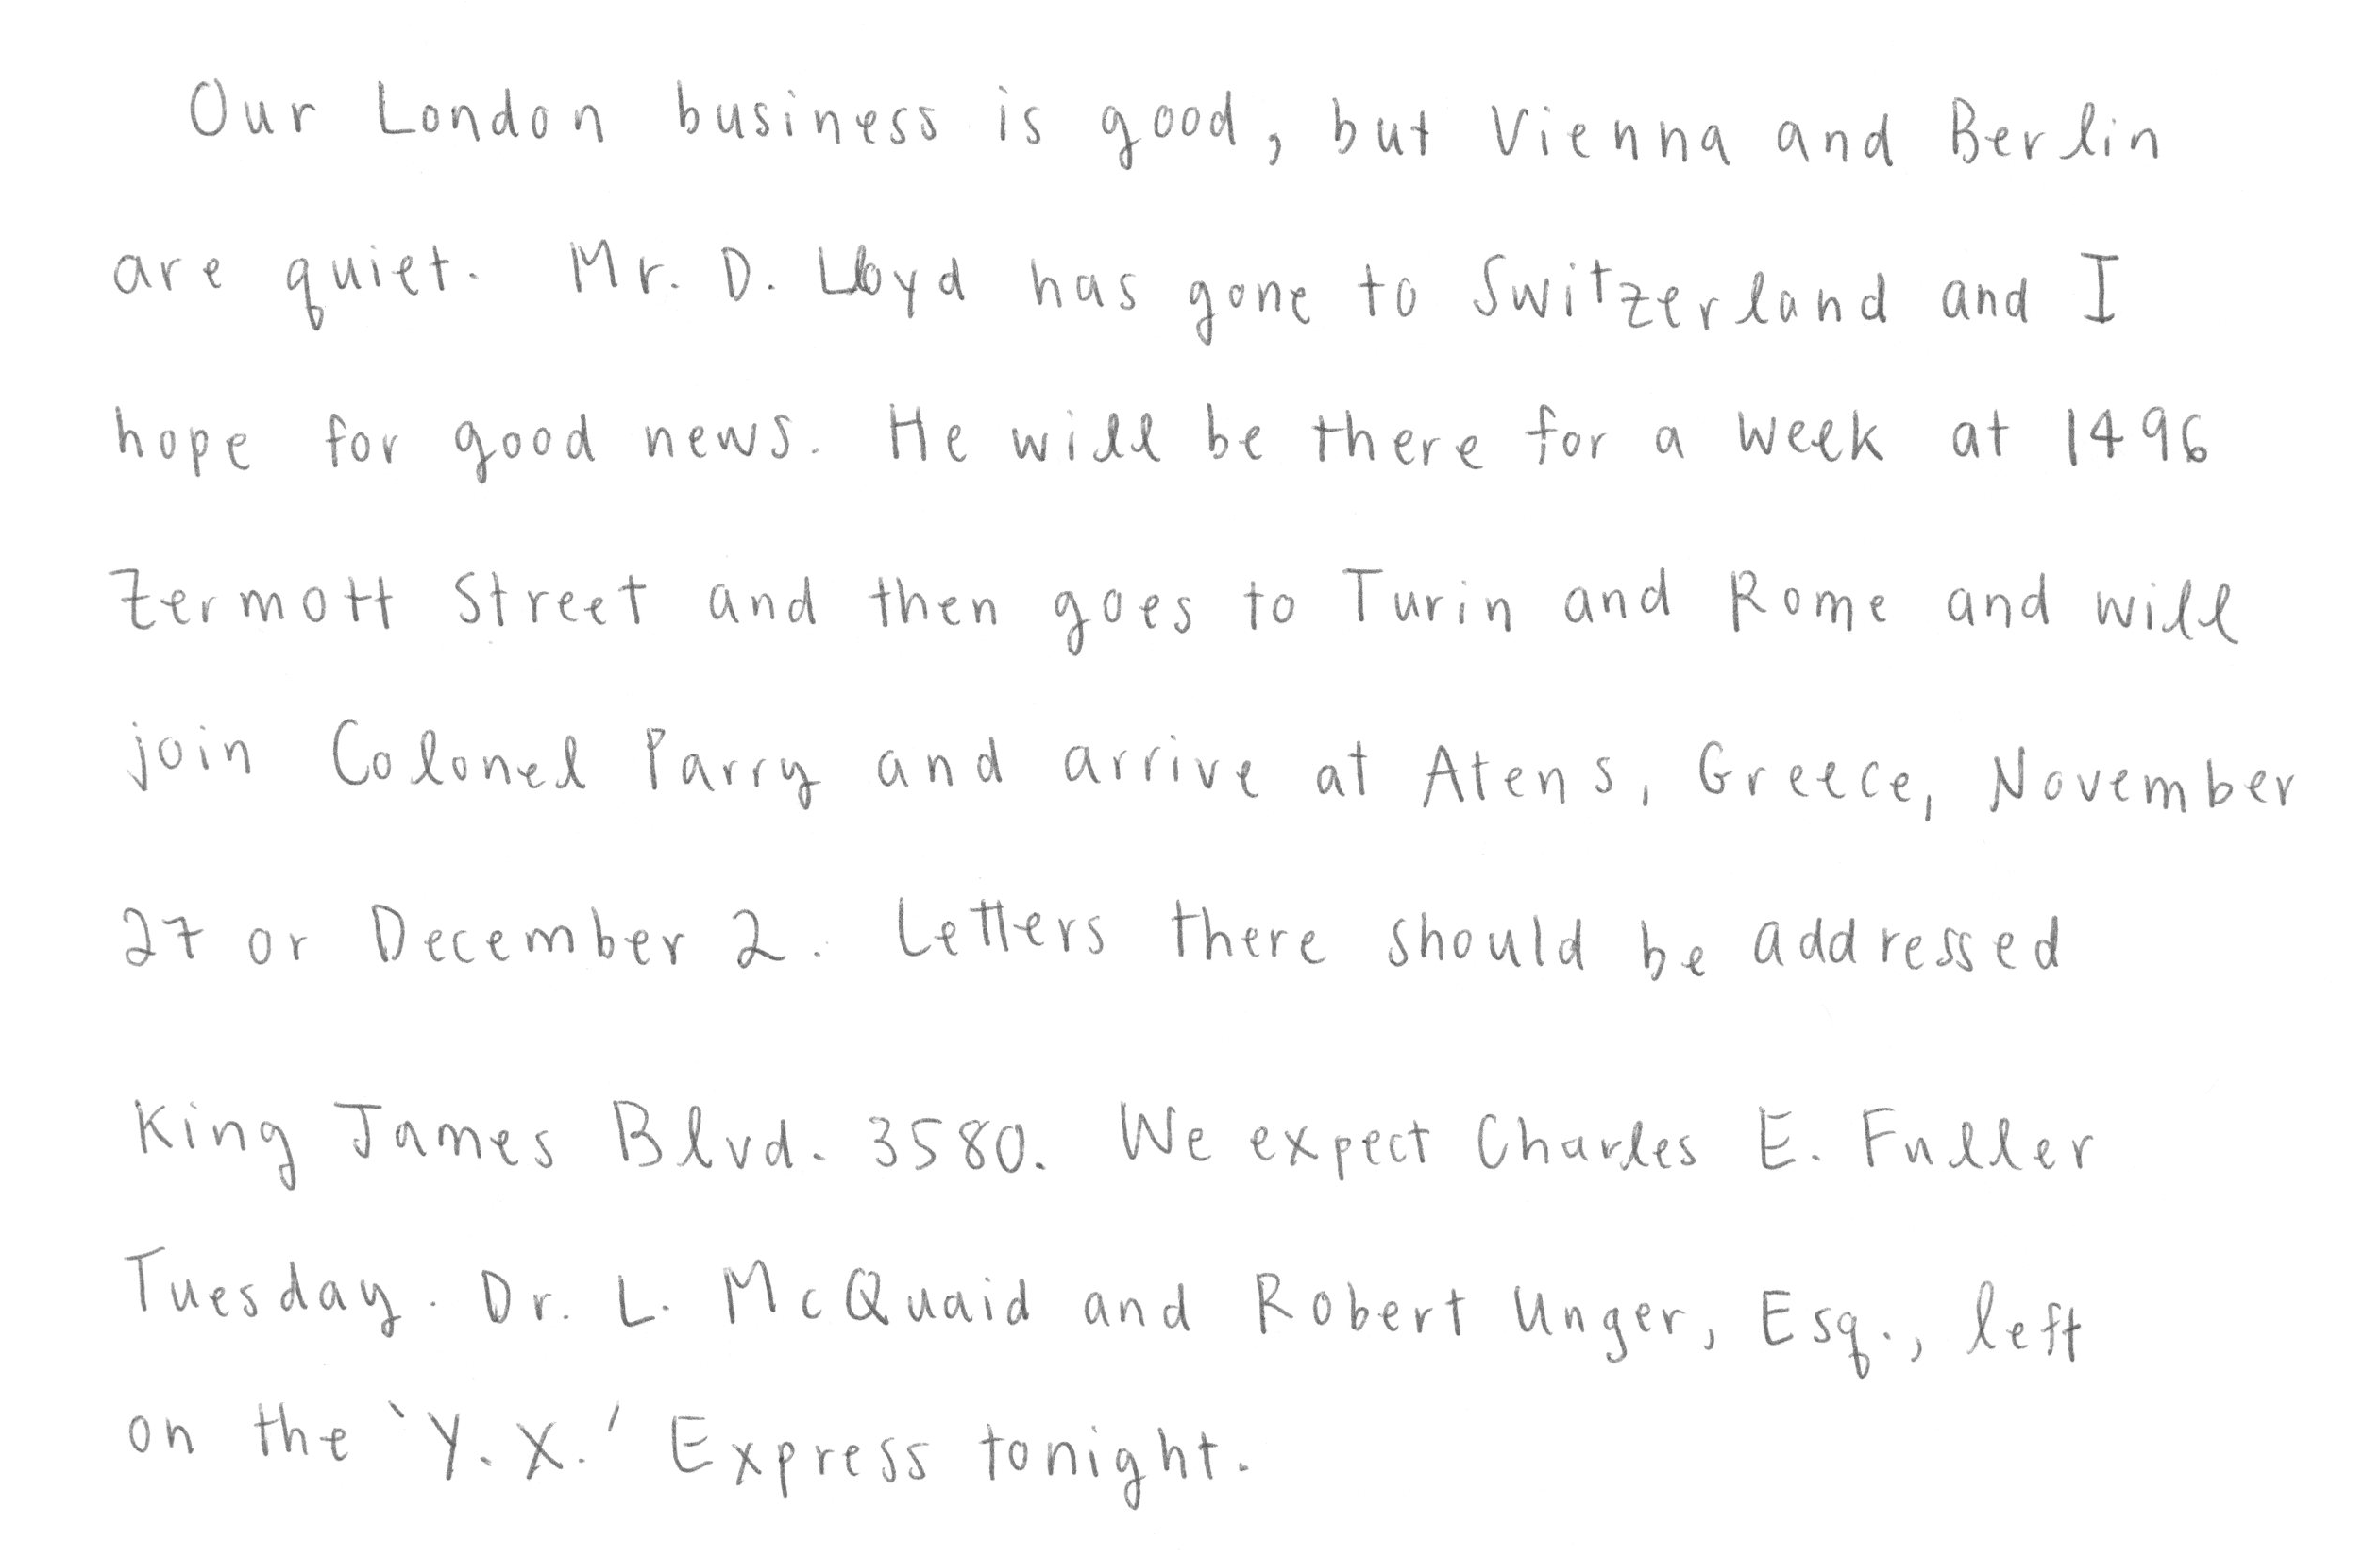 Our London business is good, but Vienna and Berlin
are quiet. Mr. D. Lloyd has gone to Switzerland and I
hope for good news. He will be there for a week at 1496
Zermott Street and then goes to Turin and Rome and will
join Colonel Parry and arrive at Atens, Greece, November
27 or December 2. Letters there should be addressed
King James Blvd. 3580. We expect Charles E. Fuller
Tuesday. Dr. L. McQuaid and Robert Unger, Esq., left
on the 'Y.X.' Express tonight.